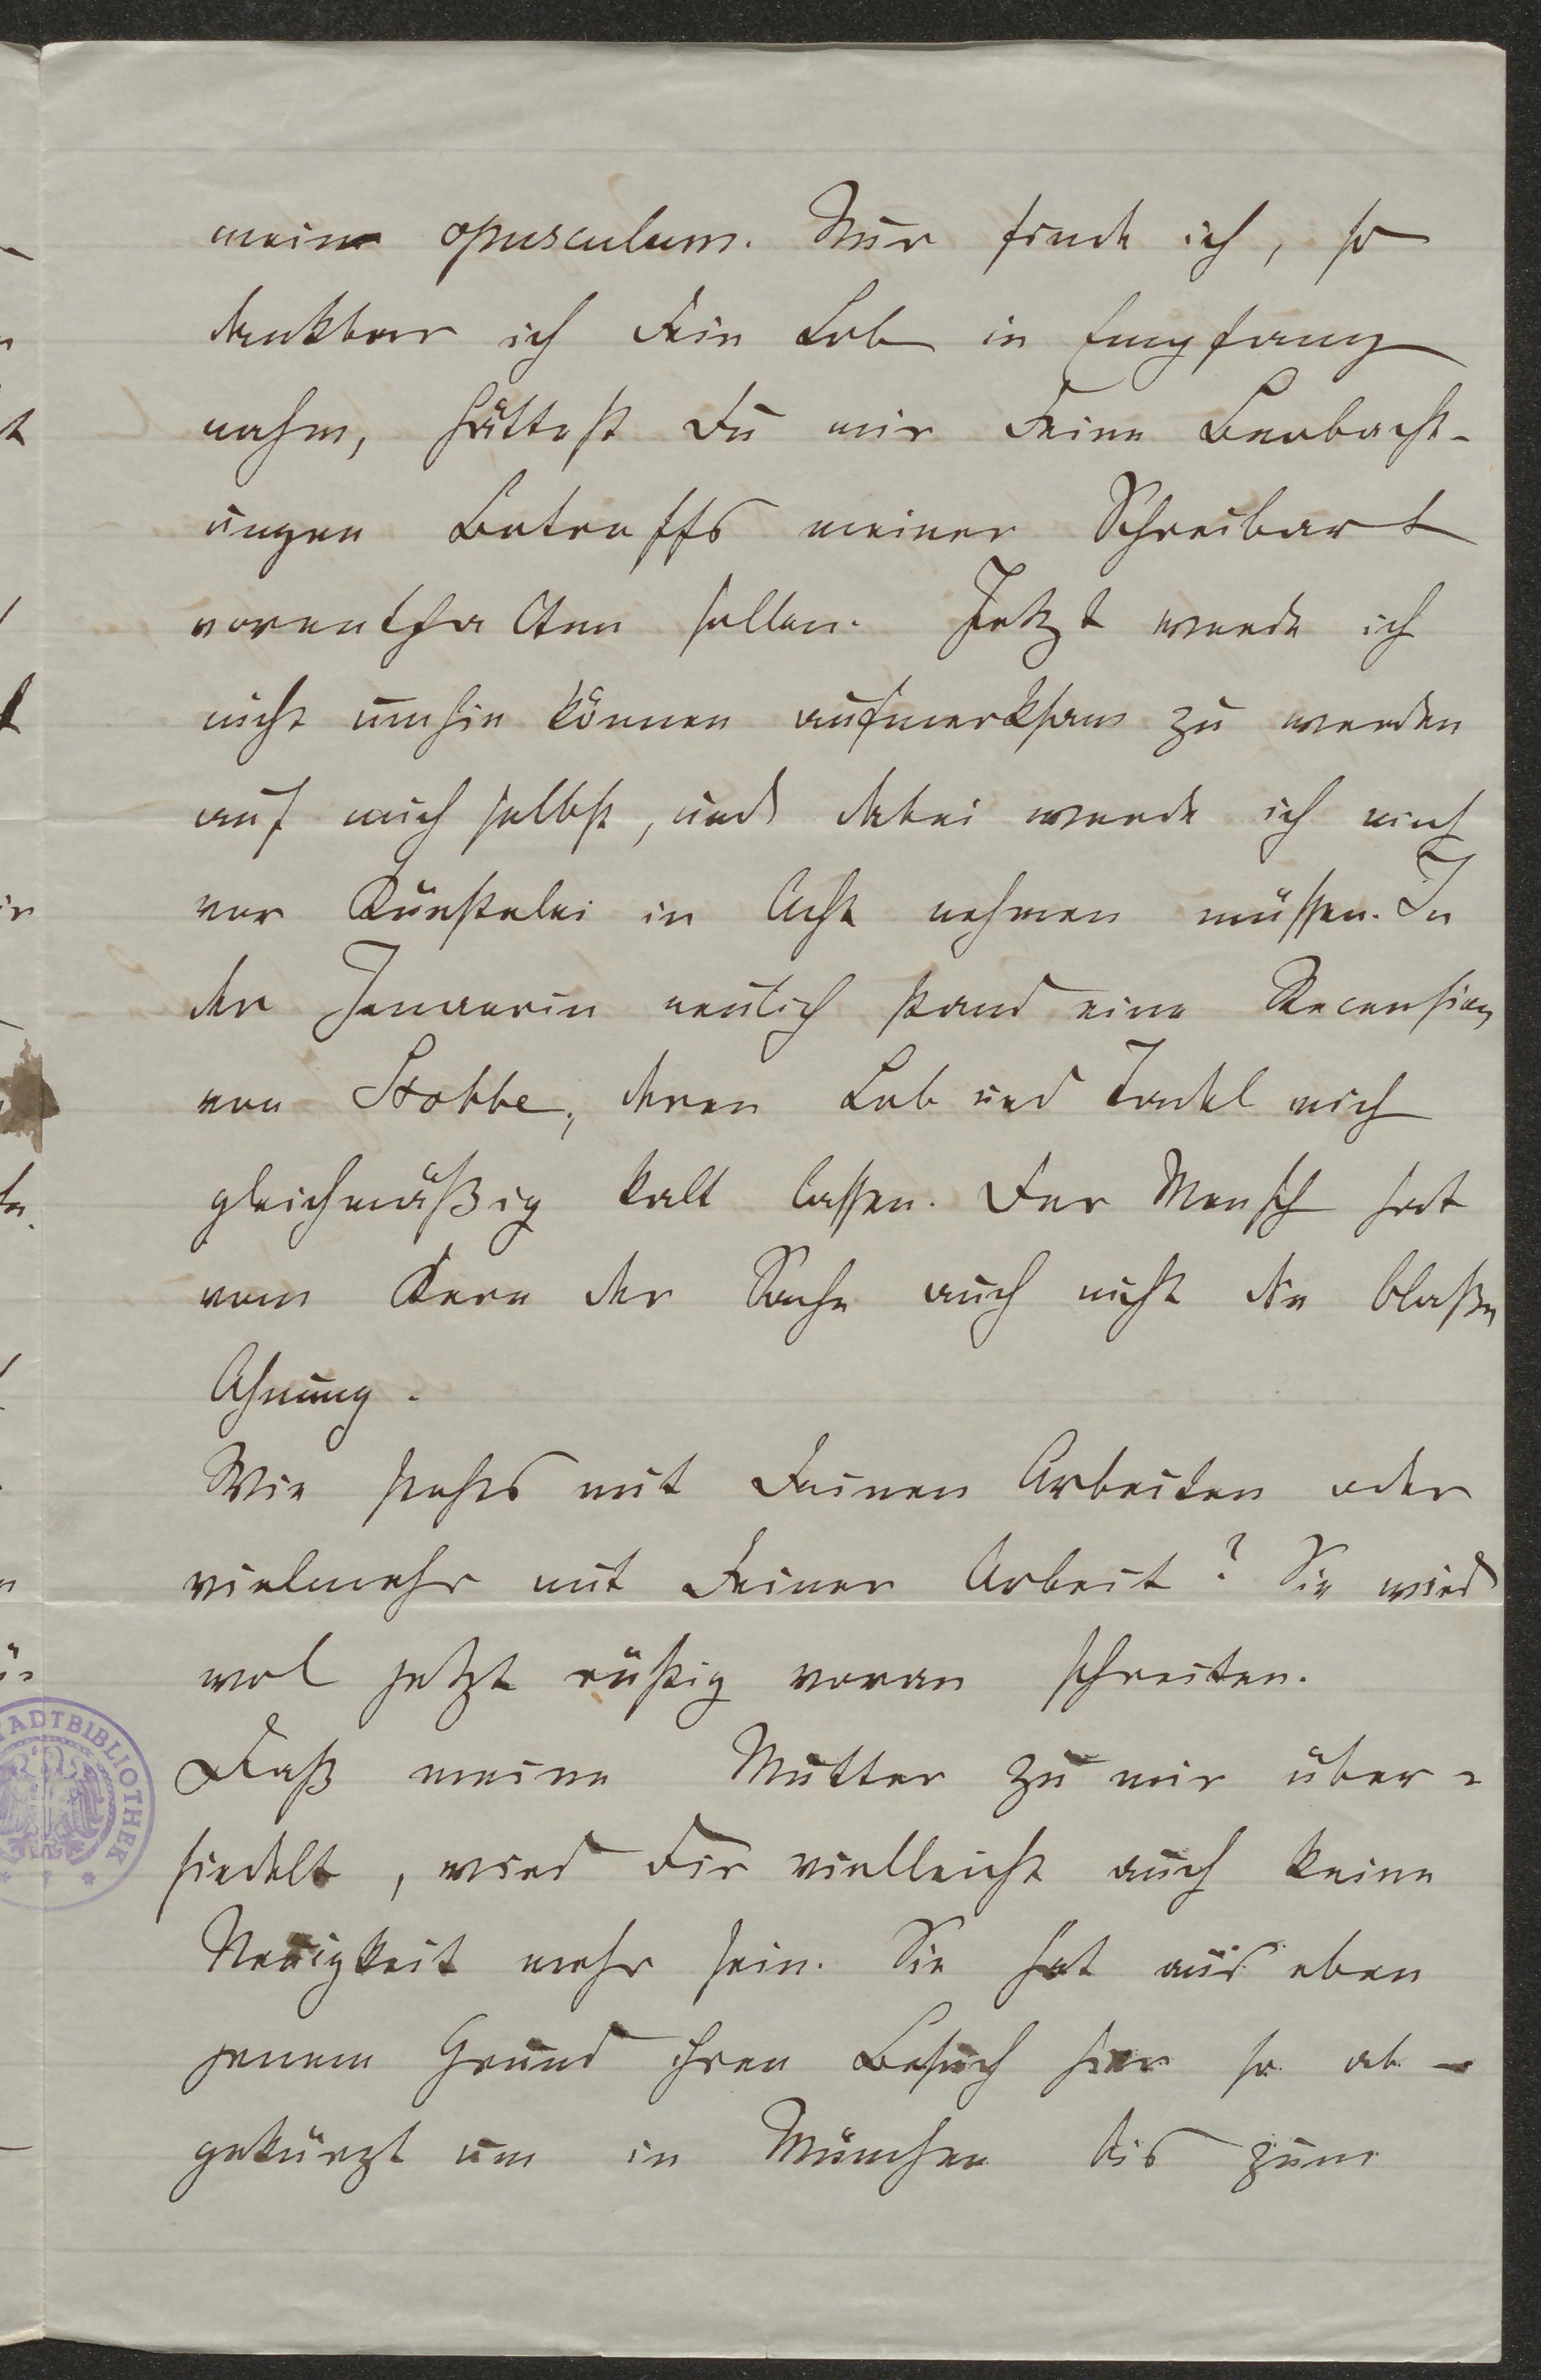 mein opusculum. Nur finde ich, so
dankbar ich Dein Lob in Empfang
nahm, hättest Du mir Deine Beobacht-
ungen Betreffs meiner Schreibart
vorenthalten sollen. Jetzt werde ich
nicht umhin können aufmerksam zu werden
auf mich selbst, und dabei werde ich mich
vor Künstelei in Acht nehmen müssen. In
der Jenaerin neulich stand eine Recension
von Stobbe, deren Lob und Tadel mich
gleichmäßig kalt lassen. Der Mensch hat
vom Kern der Sache auch nicht die blaße
Ahnung.
Wie stehts mit Deinen Arbeiten oder
vielmehr mit Deiner Arbeit? Sie wird
wol jetzt rüstig voran schreiten.
Daß meine Mutter zu mir über-
siedelt, wird Dir vielleicht auch keine
Neuigkeit mehr sein. Sie hat aus eben
jenem Grund ihren Besuch hier so ab-
gekürzt um in München bis zum
STADTBIBLIOTHEK